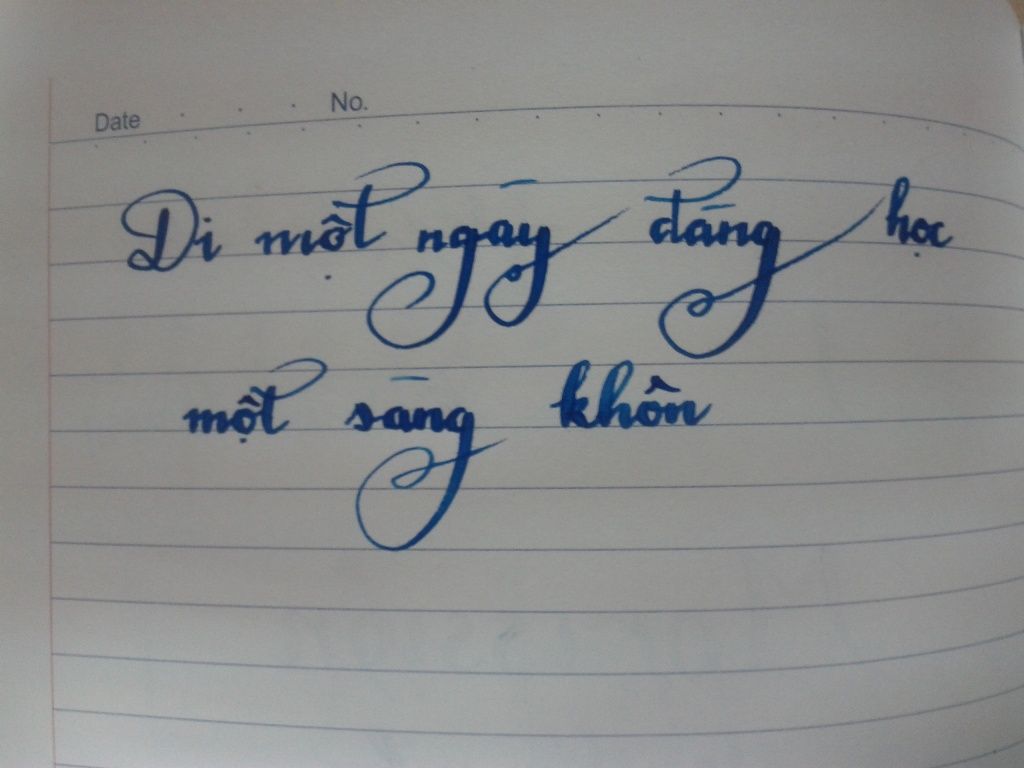 Date No.
Đi một ngày đàng học
một sàng khôn